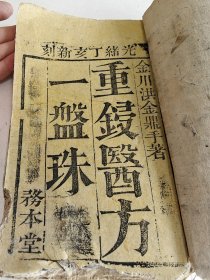 光緒丁亥新刻
金川洪金鼎手著
重鋟醫方
一盤珠
務本堂